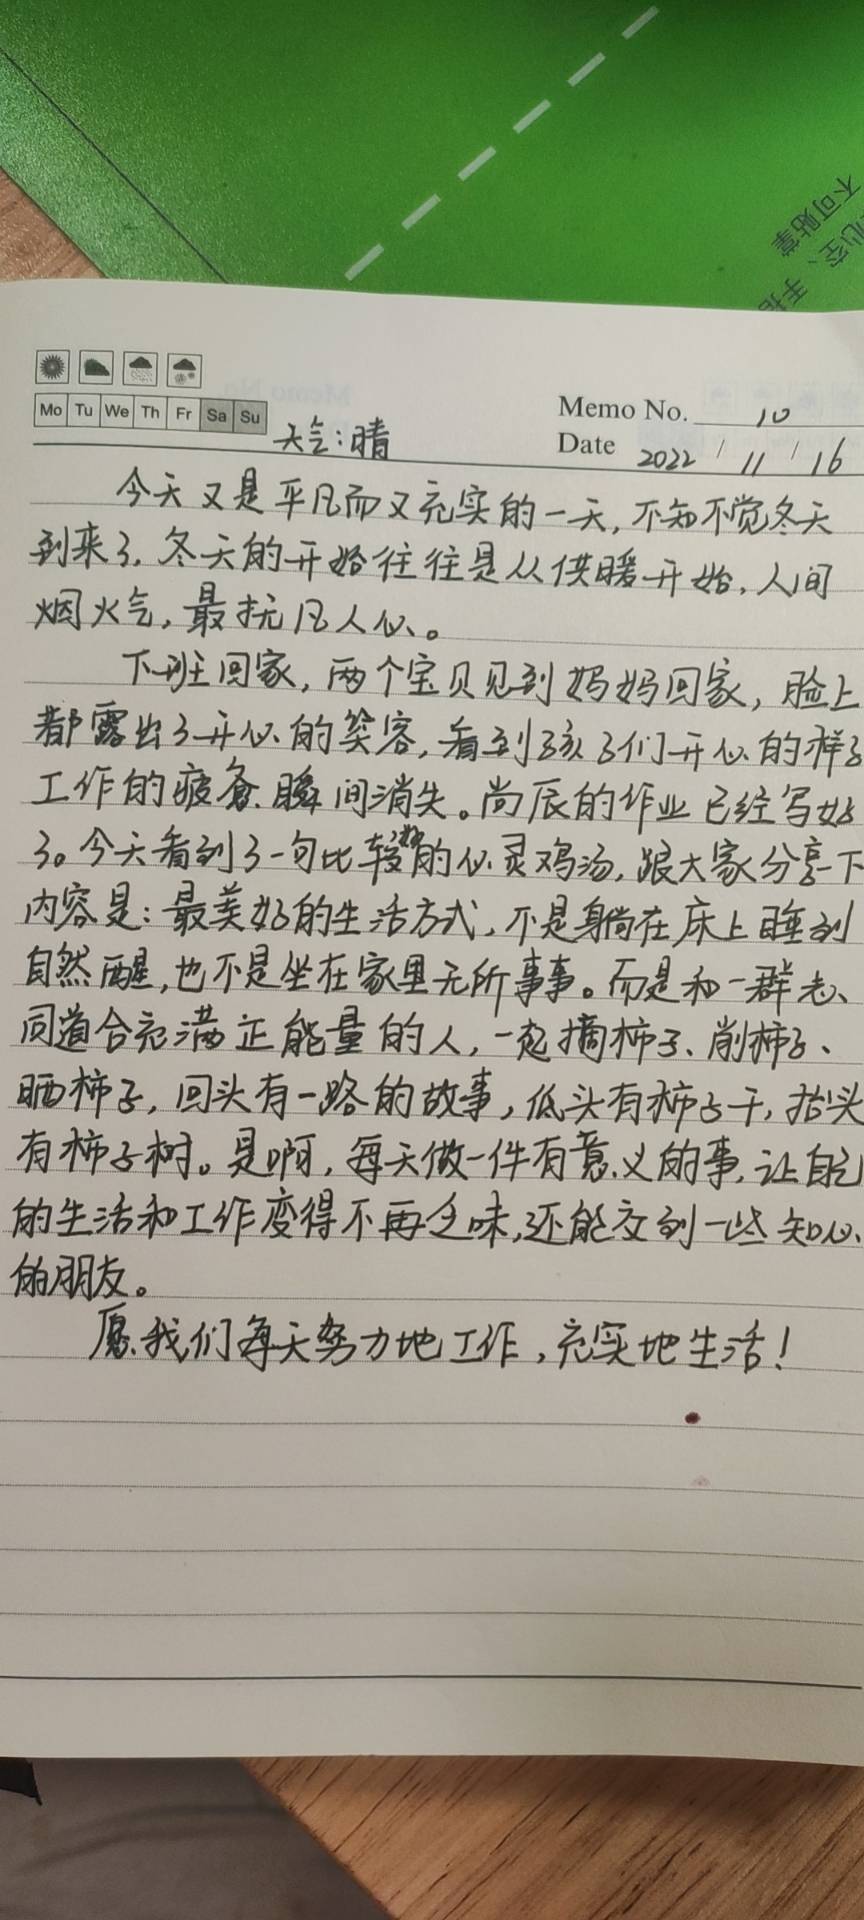 不可贴掌
心空、手指
Mo Tu We Th Fr Sa Su
Memo No. 10
天气:晴
Date 2022 / 11 / 16
今天又是平凡而又充实的一天,不知不觉冬天
到来了,冬天的开始往往是从供暖开始,人间
烟火气,最抚凡人心。
下班回家,两个宝贝见到妈妈回家,脸上
都露出了开心的笑容,看到孩子们开心的样子
工作的疲惫瞬间消失。尚辰的作业已经写好
了。今天看到了一句比较的心灵鸡汤,跟大家分享下
内容是:最美好的生活方式,不是躺在床上睡到
自然醒,也不是坐在家里无所事事。而是和一群志
同道合充满正能量的人,一起摘柿子、削柿子、
晒柿子,回头有一路的故事,低头有柿子干,抬头
有柿子树。是啊,每天做一件有意义的事,让自己
的生活和工作变得不再乏味,还能交到一些知心
的朋友。
愿我们每天努力地工作,充实地生活!